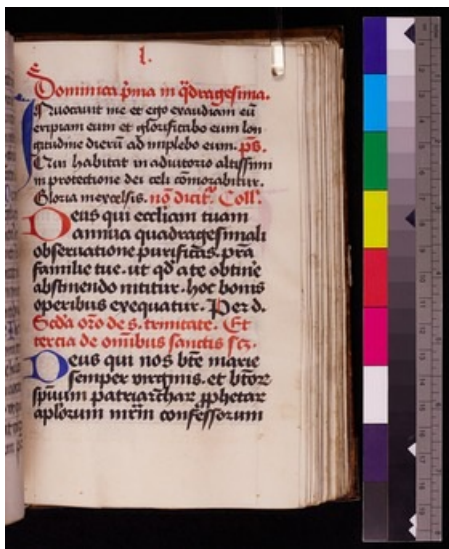 l.
Dominica p̃ma in q̃dragesima.
Invocavit me et ego exaudiam eũ
eripiam eum et glorificabo eum lon
gitudine dierũ ad implebo eum. p̃s.
Qui habitat in adiutorio altissimi
in protectione dei celi cõmorabitur.
Gloria in excelsis. nõ dicit᷑. Coll'.
Deus qui eccliam tuam
annua quadragesimali
observatione purificas. pr̃a
familie tue. ut qd a te obtine
abstinendo nititur. hoc bonis
operibus exequatur. Per d.
Scd̃a orõ de s. trinitate. Et
tercia de omĩbus sanctis scz.
Deus qui nos bt̃e marie
semper virginis. et bt̃or
spũum patriarchar ꝓphetar
aplorum mr̃m confessorum